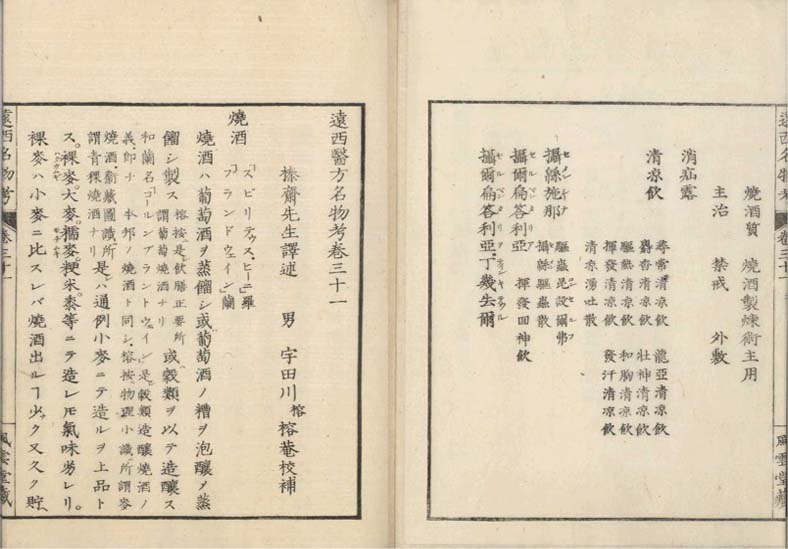 燒酒質　燒酒製煉術主用
主治　禁戒　外敷
消疝露
清凉飲
尋常清凉飲　龍亞清凉飲
麝香清凉飲　壮神清凉飲
驅熱清凉飲　和胸清凉飲
揮發清凉飲　發汗清凉飲
清凉湧吐散
攝綿施那
セメンシナ
驅蟲昆設爾弗
攝綿驅蟲散
攝爾扁荅利亞
セルペンタリア
揮發回神飲
攝爾扁荅利亞丁幾去爾
遠西名物考　卷三十一　風雲堂藏
遠西醫方名物考卷三十一
榛齋先生譯述　男　宇田川榕　榕菴校補
燒酒
「スピリテュス、ヒーニ」羅
「ブランドウェイン」蘭
燒酒ハ葡萄酒ヲ蒸餾シ或葡萄酒ノ糟ヲ泡釀メ蒸
餾シ製ス
榕按是飲膳正要所
謂葡萄燒酒ナリ
或穀類ヲ以テ造釀ス
和蘭名「コールンブラントウェイン」是穀類造釀燒酒ノ
義、即チ本邦ノ燒酒ト同シ、榕按物理小識所謂麥
燒酒衛藏圖識所
謂青稞燒酒ナリ
是ハ通例小麥ニテ造ルヲ上品ト
ス。裸麥。大麥。糯麥粳米。黍等ニテ造レ𪜈氣味劣レリ。
裸麥ハ小麥ニ比スレバ燒酒出ルヿ少ク又久ク貯
遠西名物考　卷三十一　風雲堂藏